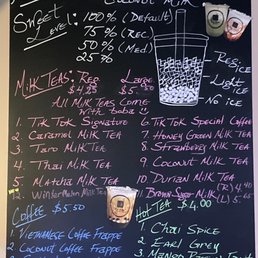 Coconut Milk
Sweet Level: 100% (Default)
75% (Rec)
50% (Med)
25%
Reg ice
Light ice
No ice
Milk Teas: Reg $4.25 Large
All Milk Teas come with boba
1. Tik Tok Signature
2. Caramel Milk Tea
3. Taro Milk Tea
4. Thai Milk Tea
5. Matcha Milk Tea
12. Wintermelon Milk Tea
6. Tik Tok Special Coffee
7. Honey Green Milk Tea
8. Strawberry Milk Tea
9. Coconut Milk Tea
10. Durian Milk Tea (R) 4.40
11. Brown Sugar Milk (L) 5.65
Coffee $5.50
1. Vietnamese Coffee Frappe
2. Coconut Coffee Frappe
Hot Tea $4.00
1. Chai Spice
2. Earl Grey
3. Mango